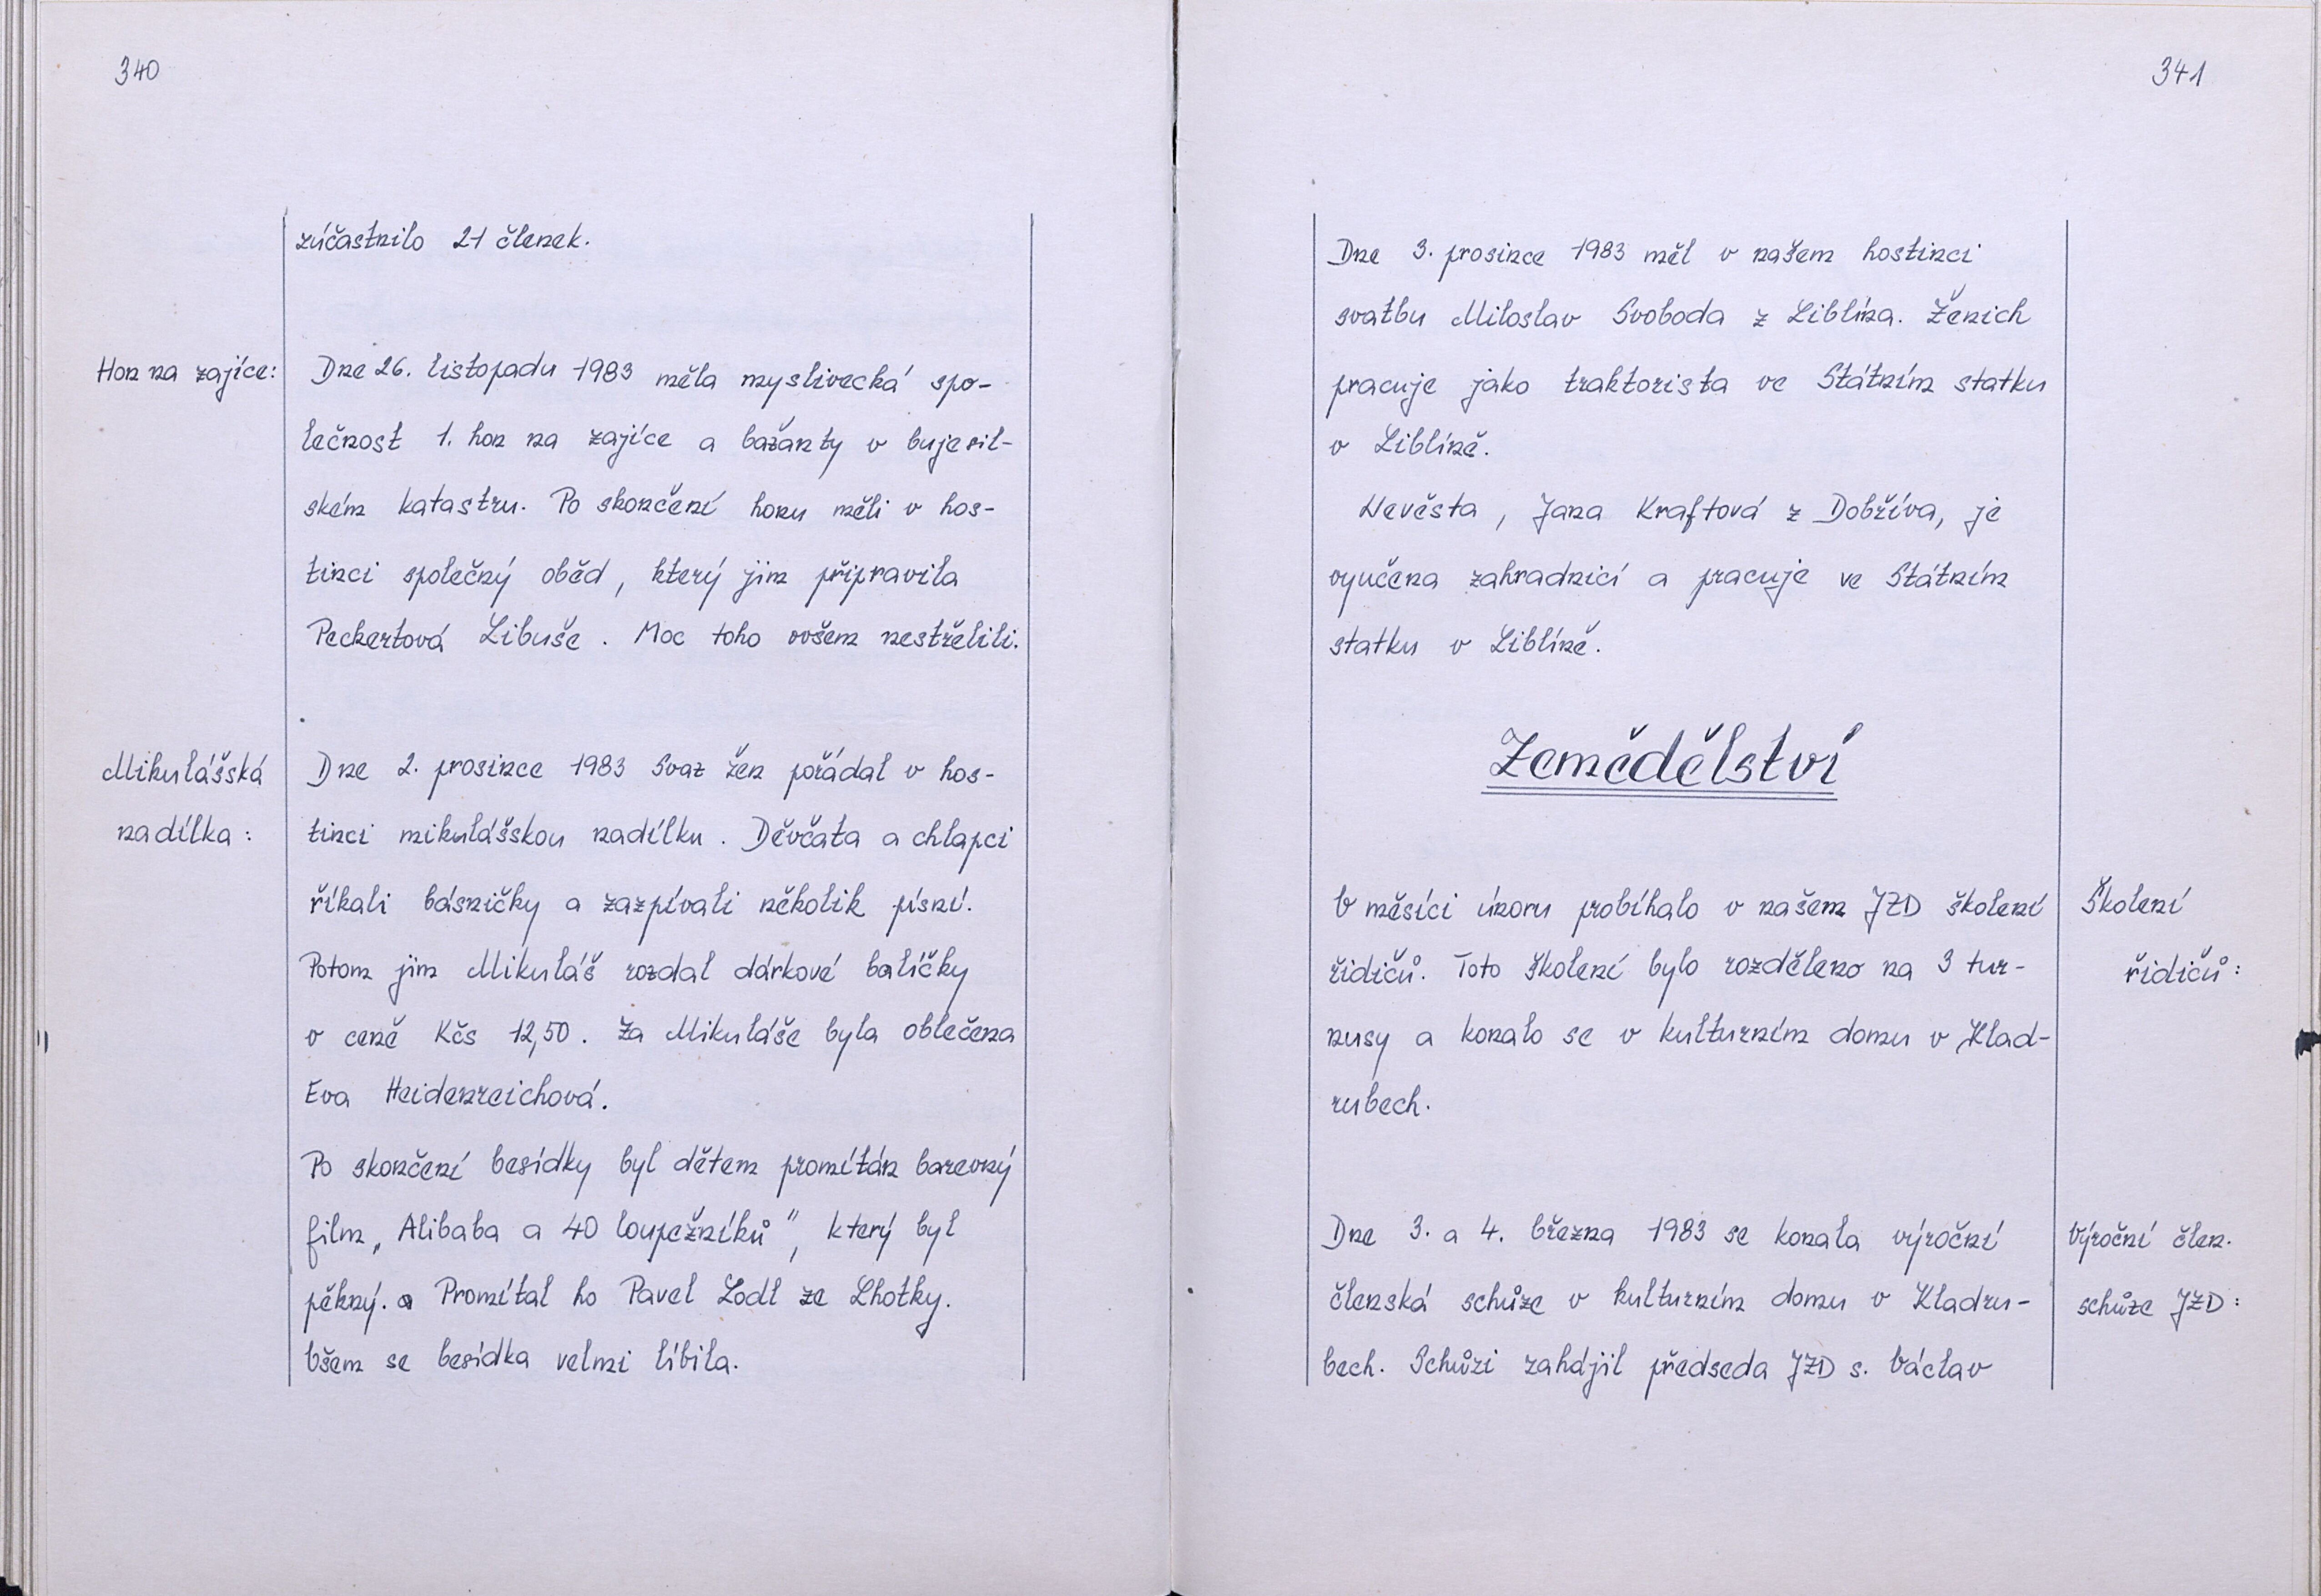 340
zúčastnilo 21 členek.
Hon na zajíce:
Dne 26. listopadu 1983 měla myslivecká spo-
lečnost 1. hon na zajíce a bažanty v bujesil-
ském katastru. Po skončení honu měli v hos-
tinci společný oběd, který jim připravila
Peckertová Libuše. Moc toho ovšem nestřelili.
Mikulášská
nadílka:
Dne 2. prosince 1983 Svaz žen pořádal v hos-
tinci mikulášskou nadílku. Děvčata a chlapci
říkali básničky a zazpívali několik písní.
Potom jim Mikuláš rozdal dárkové balíčky
v ceně Kčs 12,50. Za Mikuláše byla oblečena
Eva Heidenreichová.
Po skončení besídky byl dětem promítán barevný
film „Alibaba a 40 loupežníků", který byl
pěkný. Promítal ho Pavel Lodl ze Lhotky.
Všem se besídka velmi líbila.
341
Dne 3. prosince 1983 měl v našem hostinci
svatbu Miloslav Svoboda z Liblína. Ženich
pracuje jako traktorista ve Státním statku
v Liblíně.
Nevěsta, Jana Kraftová z Dobříva, je
vyučena zahradnicí a pracuje ve Státním
statku v Liblíně.
Zemědělství
V měsíci únoru probíhalo v našem JZD školení
řidičů. Toto školení bylo rozděleno na 3 tur-
nusy a konalo se v kulturním domu v Klad-
rubech.
Školení
řidičů:
Dne 3. a 4. března 1983 se konala výroční
členská schůze v kulturním domu v Kladru-
bech. Schůzi zahájil předseda JZD s. Václav
Výroční člen.
schůze JZD: